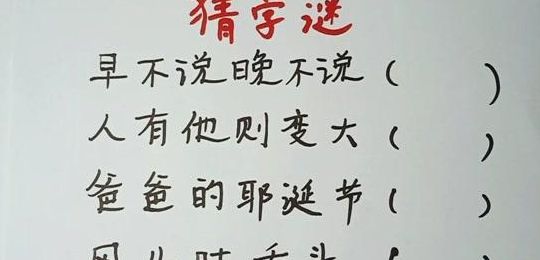 猜字谜
早不说晚不说（ ）
人有他则变大（ ）
爸爸的耶诞节（ ）